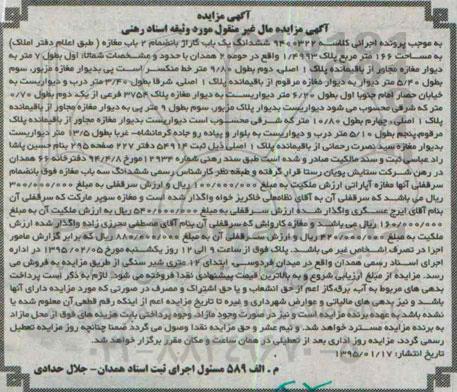 آگهی مزایده
آگهی مزایده مال غیر منقول مورد وثیقه اسناد رهنی
به موجب پرونده اجرائی کلاسه ۹۴۰۰۳۲۲ ششدانگ یک باب گاراژ بانضمام ۲ باب مغازه (طبق اعلام دفتر املاک)
به مساحت ۱۶۶ متر مربع پلاک ۱/۴۹۹۳ واقع در حومه ۲ همدان با حدود و مشخصات شمالا: اول بطول ۷ متر به
دیوار مغازه مجاور از باقیمانده پلاک ۱ اصلی، دوم بطول ۹/۸۰ متر خط منکسر است پی بدیوار مغازه مزبور، سوم
بطول ۵/۴۰ متر دیوار به دیوار مغازه مرقوم از باقیمانده پلاک ۱ اصلی، شرقا بطول ۳/۴۰ متر درب و دیواریست به
خیابان حصار امام جنوبا اول بطول ۶/۲۰ متر دیواریست بدیوار مغازه پلاک ۳۷۵۴ فرعی از یک دوم بطول ۰/۷۰
متر که شرقی محسوب می شود دیواریست بدیوار پلاک مزبور، سوم بطول ۹ متر پی به دیوار مغازه مجاور از باقیمانده
پلاک ۱ اصلی، چهارم بطول ۱۰/۸۰ متر که شرقی محسوب است دیواریست بدیوار مغازه مجاور از باقیمانده پلاک
مرقوم پنجم بطول ۵/۱۰ متر درب و دیواریست به بلوار و پیاده رو جاده کرمانشاه- غربا بطول ۱۳/۵ متر دیواریست
بدیوار مغازه سید نصرت رحمانی از باقیمانده پلاک ۱ اصلی ذیل ثبت ۵۴۹۱۴ دفتر ۲۲۷ صفحه ۲۹۵ بنام حسین پاشا
راد عباسی ثبت و سند مالکیت صادر و شده است طبق سند رهنی شماره ۱۲۹۳۴ مورخ ۹۴/۴/۸ دفترخانه ۶۶ همدان
در رهن شرکت ستایش پویان رستا قرار گرفته و طبقه نظر کارشناس رسمی ششدانگ سه باب مغازه فوق بانضمام
سرقفلی آنها مغازه آپاراتی ارزش ملکیت به مبلغ ۱۰۰/۰۰۰/۰۰۰ ریال و ارزش سرقفلی به مبلغ ۳۰۰/۰۰۰/۰۰۰
ریال می باشند که سرقفلی آن به آقای نظامعلی خاکریز خواه واگذار شده است و مغازه سوپر مارکت که سرقفلی آن
بنام آقای ایرج عسگری واگذار شده ارزش سرقفلی به مبلغ ۵۴۰/۰۰۰/۰۰۰ ریال به ارزش ملکیت آن به مبلغ
۱۶۰/۰۰۰/۰۰۰ ریال می باشند و مغازه کارواش که سرقفلی آن بنام آقای مصطفی محرزی زاده واگذار شده ارزش
ملکیت به مبلغ ۴۴۰/۰۰۰/۰۰۰ ریال و ارزش سرقفلی آن به مبلغ ۱/۸۰۰/۰۰۰/۰۰۰ ریال که برابر گزارش مامور
اجرا در تصرف اشخاص غیر می باشند. پلاک فوق از ساعت ۹ الی ۱۲ روز یکشنبه مورخ ۱۳۹۵/۰۲/۰۵ در اداره
اجرای اسناد رسمی همدان واقع در میدان فردوسی - ابتدای ۱۲ متری شیر سنگی از طریق مزایده به فروش می
رسد. مزایده از مبلغ ارزیابی شروع و به بالاترین قیمت پیشنهادی نقدا فروخته می شود. لازم به ذکر است پرداخت
بدهی های مربوط به آب، برق، گاز اعم از حق انشعاب و یا حق اشتراک و مصرف در صورتی که مورد مزایده دارای آنها
باشد و نیز بدهی های مالیاتی و عوارض شهرداری و غیره تا تاریخ مزایده اعم از اینکه رقم قطعی آن معلوم شده یا
نشده باشد به عهده برنده مزایده است و نیز در صورت وجود مازاد، وجوه پرداختی بابت هزینه های فوق از محل مازاد
به برنده مزایده مسترد خواهد شد. و نیم عشر و حق مزایده نقدا وصول می گردد ضمنا چنانچه روز مزایده تعطیل
رسمی گردد. مزایده روز اداری بعد از تعطیلی در همان ساعت و مکان مقرر برگزار خواهد شد.
تاریخ انتشار: ۱۳۹۵/۰۱/۱۷
م . الف ۵۸۹ مسئول اجرای ثبت اسناد همدان- جلال حدادی